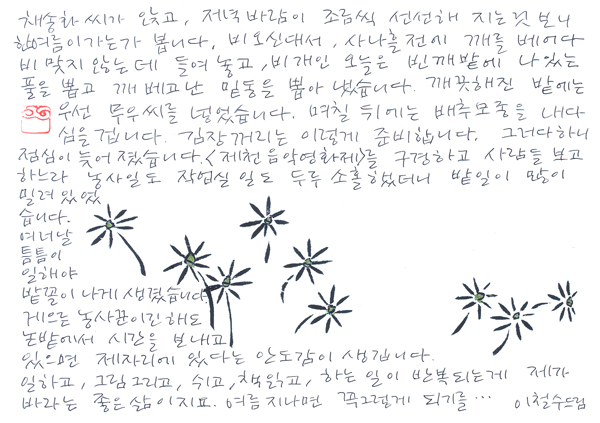 채송화 씨가 앉고, 저녁바람이 조금씩 선선해 지는 것 보니
한여름이 가는가 봅니다. 비오신대서, 사나흘 전에 깨를 베어다
비 맞지 않는데 들여 놓고, 비 개인 오늘은 빈 깨밭에 나 있는
풀을 뽑고 깨 베고난 밑둥을 뽑아 냈습니다. 깨끗해진 밭에는
우선 무우씨를 넣었습니다. 며칠 뒤에는 배추모종을 내다
심을겁니다. 김장꺼리는 이렇게 준비합니다. 그러다하니
점심이 늦어 졌습니다. <제천음악영화제>를 구경하고 사람들 보고
하느라 농사일도 작업실 일도 두루 소홀했더니 밭일이 많이
밀려 있었
습니다.
여러날
틈틈이
일해야
밭꼴이 나게 생겼습니다.
게으른 농사꾼이긴 해도
논밭에서 시간을 보내고
있으면 제자리에 있다는 안도감이 생깁니다.
일하고, 그림그리고, 쉬고, 책읽고, 하는 일이 반복되는게 제가
바라는 좋은 삶이지요. 여름지나면 꼭 그렇게 되기를… 이철수 드림